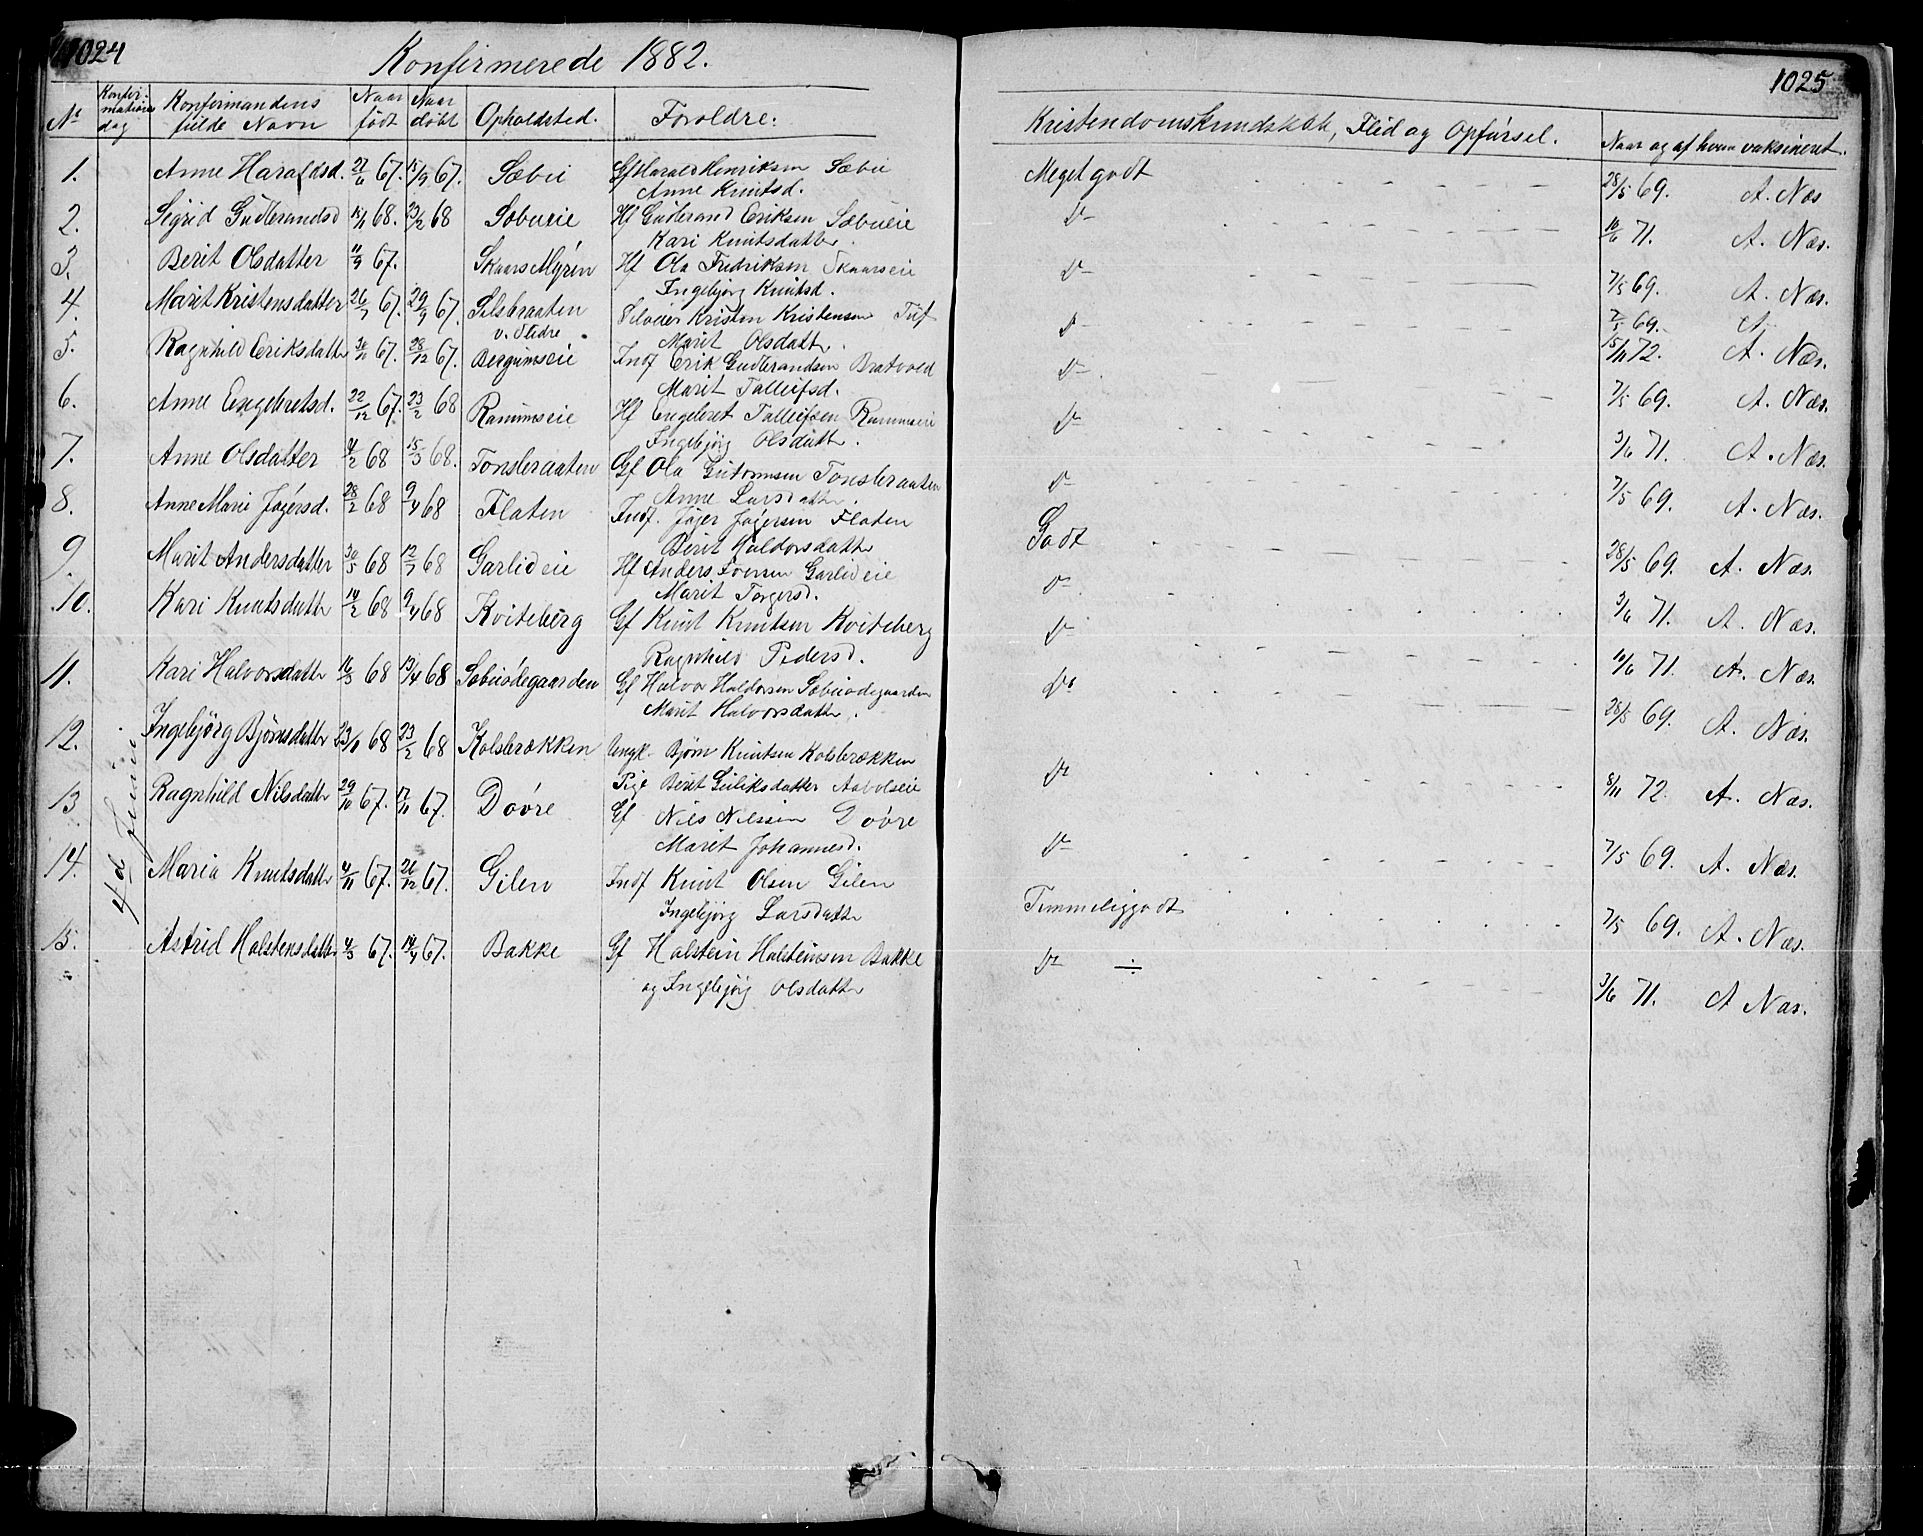 1024
Konfirmerede 1882.
No Konfirmations dag Konfirmandens fulde Navn Naar født Naar døbt Opholdsted. Foreldre.
4de Juni
1. Anne Haraldsd. 27/6 67. 15/9 67. Sæbü Gf Harald Henriksen Sæbü
Anne Knutsd.
2. Sigrid Gudbrandsd 15/1 68. 23/2 68 Sæbueie Hf Gudbrand Eriksen Sæbueie
Kari Knutsdatter.
3. Berit Olsdatter 11/9 67. Skaars Myren Hf Ola Fredriksen Skaarseie
Ingebjørg Knutsd.
4. Marit Kristensdatter 26/7 67. 29/9 67. Selsbraaten Kristen Kristensen Tüf
v. Slidre Marit Olsdatter.
5. Ragnhild Eriksdatter 30/11 67. 28/12 67. Bergumseie Indf Erik Gudbrandsen Bratvold
Marit Tolleifsd.
6. Anne Engebretsd. 22/12 67. 23/2 68 Ranumseie Hf Engebret Tolleifsen Ranumseie
Ingebjørg Olsdatt.
7. Anne Olsdatter 4/2 68 15/3 68. Tonsbraaten Gf Ola Guttormsen Tonsbraaten
Anne Larsdatter.
8. Anne Marie Jøgersd. 28/2 68 9/4 68 Flaten Indf. Jøger Jøgersen Flaten
Berit Haldorsdatter
9. Marit Andersdatter 30/5 68 12/7 68 Garlideie Hf Anders Iversen Garlideie
Marit Torgersd.
10. Kari Knutsdatter 14/2 68 9/4 68 Kviteberg Gf Knut Knutsen Kviteberg
Ragnhild Pedersd.
11. Kari Halvorsdatter 16/3 68 13/4 68 Sæbuødegaarden Gf Halvor Haldorsen Sæbuødegaarden
Marit Halvorsdatter.
12. Ingebjørg Bjørnsdatter 23/1 68 23/2 68 Kolsbrækken Ungk. Bjørn Knutsen Kolsbrækken
Pige Berit Guliksdatter Aabolseie
13. Ragnhild Nilsdatter 29/10 67. 17/11 67. Døvre Gf Nils Nilssen Døvre
Marit Johannesd.
14. Maria Knutsdatter 4/11 67. 26/12 67. Gilen Indf Knut Olsen Gilen
Ingebjørg Larsdatter
15. Astrid Halstensdatter 4/3 67. 14/4 67. Bakke Gf Halstein Halsteinsen Bakke
og Ingebjørg Olsdatter
1025
Kristendomskundskab, Flid og Opførsel. Naar og af hvem vaksineret.
Meget godt 28/5 69. A. Næs
Do 10/6 71. A. Næs.
Do 7/5 69. A. Næs.
Do 7/5 69. A.
15/11 72. A. Næs.
Do 7/5 69. A. Næs.
Do 3/6 71. A. Næs.
Do 7/5 69. A. Næs.
Godt 28/5 69. A. Næs.
Do 3/6 71. A. Næs.
Do 10/6 71. A. Næs.
Do 28/5 69. A. Næs.
Do 8/11 72. A. Næs.
Do 7/5 69. A. Næs.
Temmeliggodt 7/5 69. A. Næs.
Do ÷ 3/6 71. A Næs.